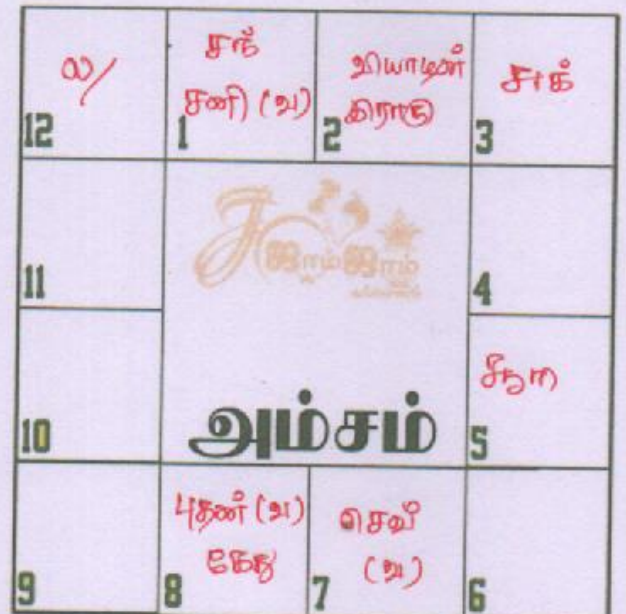 ல/
12
சந்
சனி (வ)
1
வியாழன்
ராகு
2
சுக்
3
11
ஜாம்ஜாம்
4
10
அம்சம்
சூரி
5
9
புதன் (வ)
கேது
8
செவ்
(வ)
7
6